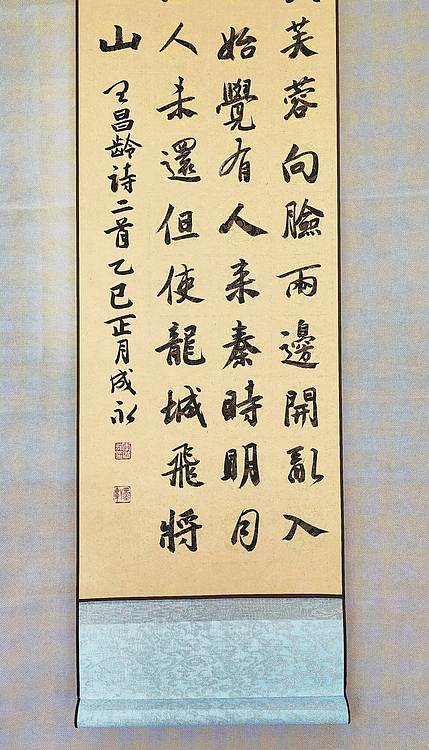 芙蓉向臉兩邊開亂入
始覺有人来秦時明月
人未還但使龍城飛將
山 王昌齡詩二首乙巳正月成永